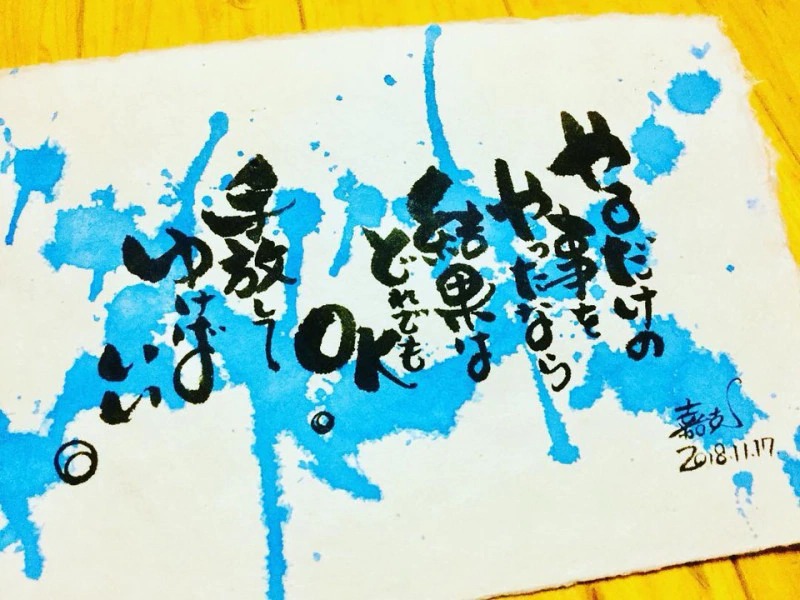 やるだけの
事を
やったなら
結果は
どれでも
OK。
手放して
ゆけば
いい。
嘉克
2018.11.17